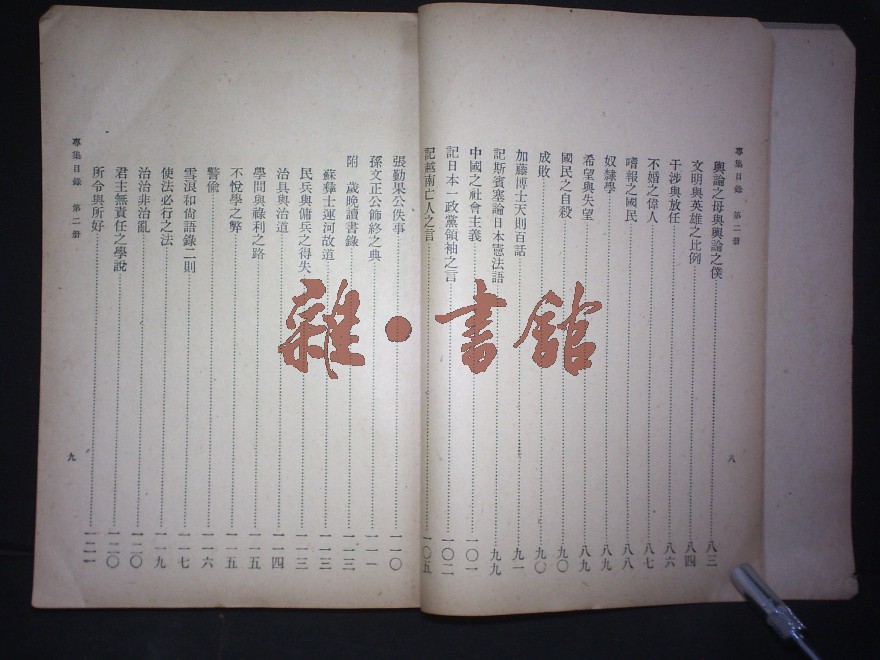 專集目錄 第二冊
輿論之母與輿論之僕……八三
文明與英雄之比例……八四
干涉與放任……八六
不婚之偉人……八七
嗜報之國民……八八
奴隸學……八九
希望與失望……八九
國民之自殺……九〇
成敗……九〇
加藤博士天則百話……九一
記斯賓塞論日本憲法語……九九
中國之社會主義……一〇一
記日本一政黨領袖之言……一〇二
記越南亡人之言……一〇五
八
張勤果公佚事……一一〇
孫文正公飾終之典……一一一
附 歲晚讀書錄……一一三
蘇彝士運河故道……一一三
民兵與傭兵之得失……一一三
治具與治道……一一四
學問與祿利之路……一一五
不悅學之弊……一一五
警偷……一一六
雪浪和尚語錄二則……一一七
使法必行之法……一一九
治治非治亂……一二〇
君主無責任之學說……一二〇
所令與所好……一二一
專集目錄 第二冊
九
雜·書館